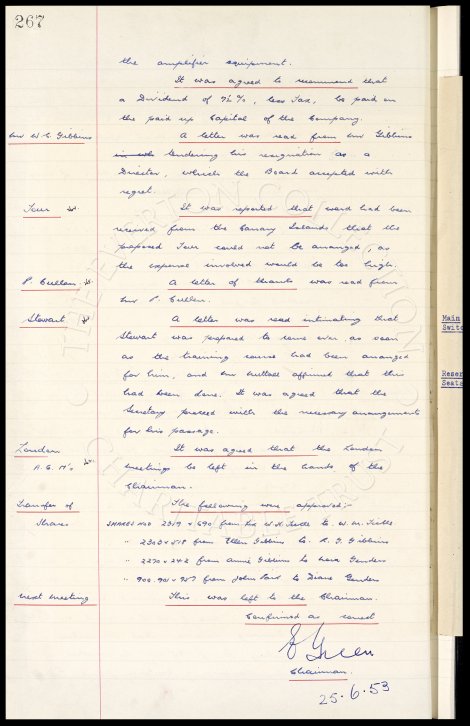 267
the amplifier equipment.
It was agreed to recommend that
a Dividend of 7½%, less Tax, be paid on
the paid up Capital of the Company.
Mr W. C. Gibbins
A letter was read from Mr Gibbins
tendering his resignation as a
Director, which the Board accepted with
regret.
Tour
It was reported that word had been
received from the Canary Islands that the
proposed Tour could not be arranged, as
the expense involved would be too high.
P. Cullen.
A letter of thanks was read from
Mr P. Cullen.
Stewart.
A letter was read intimating that
Stewart was prepared to come over as soon
as the training course had been arranged
for him, and Mr affirmed that this
had been done. It was agreed that the
Secretary proceed with the necessary arrangements
for his passage.
London
A.G.M's
It was agreed that the London
meetings be left in the hands of the
Chairman.
Transfer of
Shares
The following were approved:-
SHARES NO 2319 & 690 from W. H. to W. M.
" 2303 & 518 from Ellen Gibbins to R. J. Gibbins
" 2270 & 242 from Annie Gibbins to Genders
" 900. 901 & 957 from John to Diane Genders
next meeting
This was left to the Chairman.
Confirmed as correct
E Green
Chairman.
25.6.53
Main
Switc
Reser
Seats
THE EVERTON COLLECTION
CHARITABLE TRUST